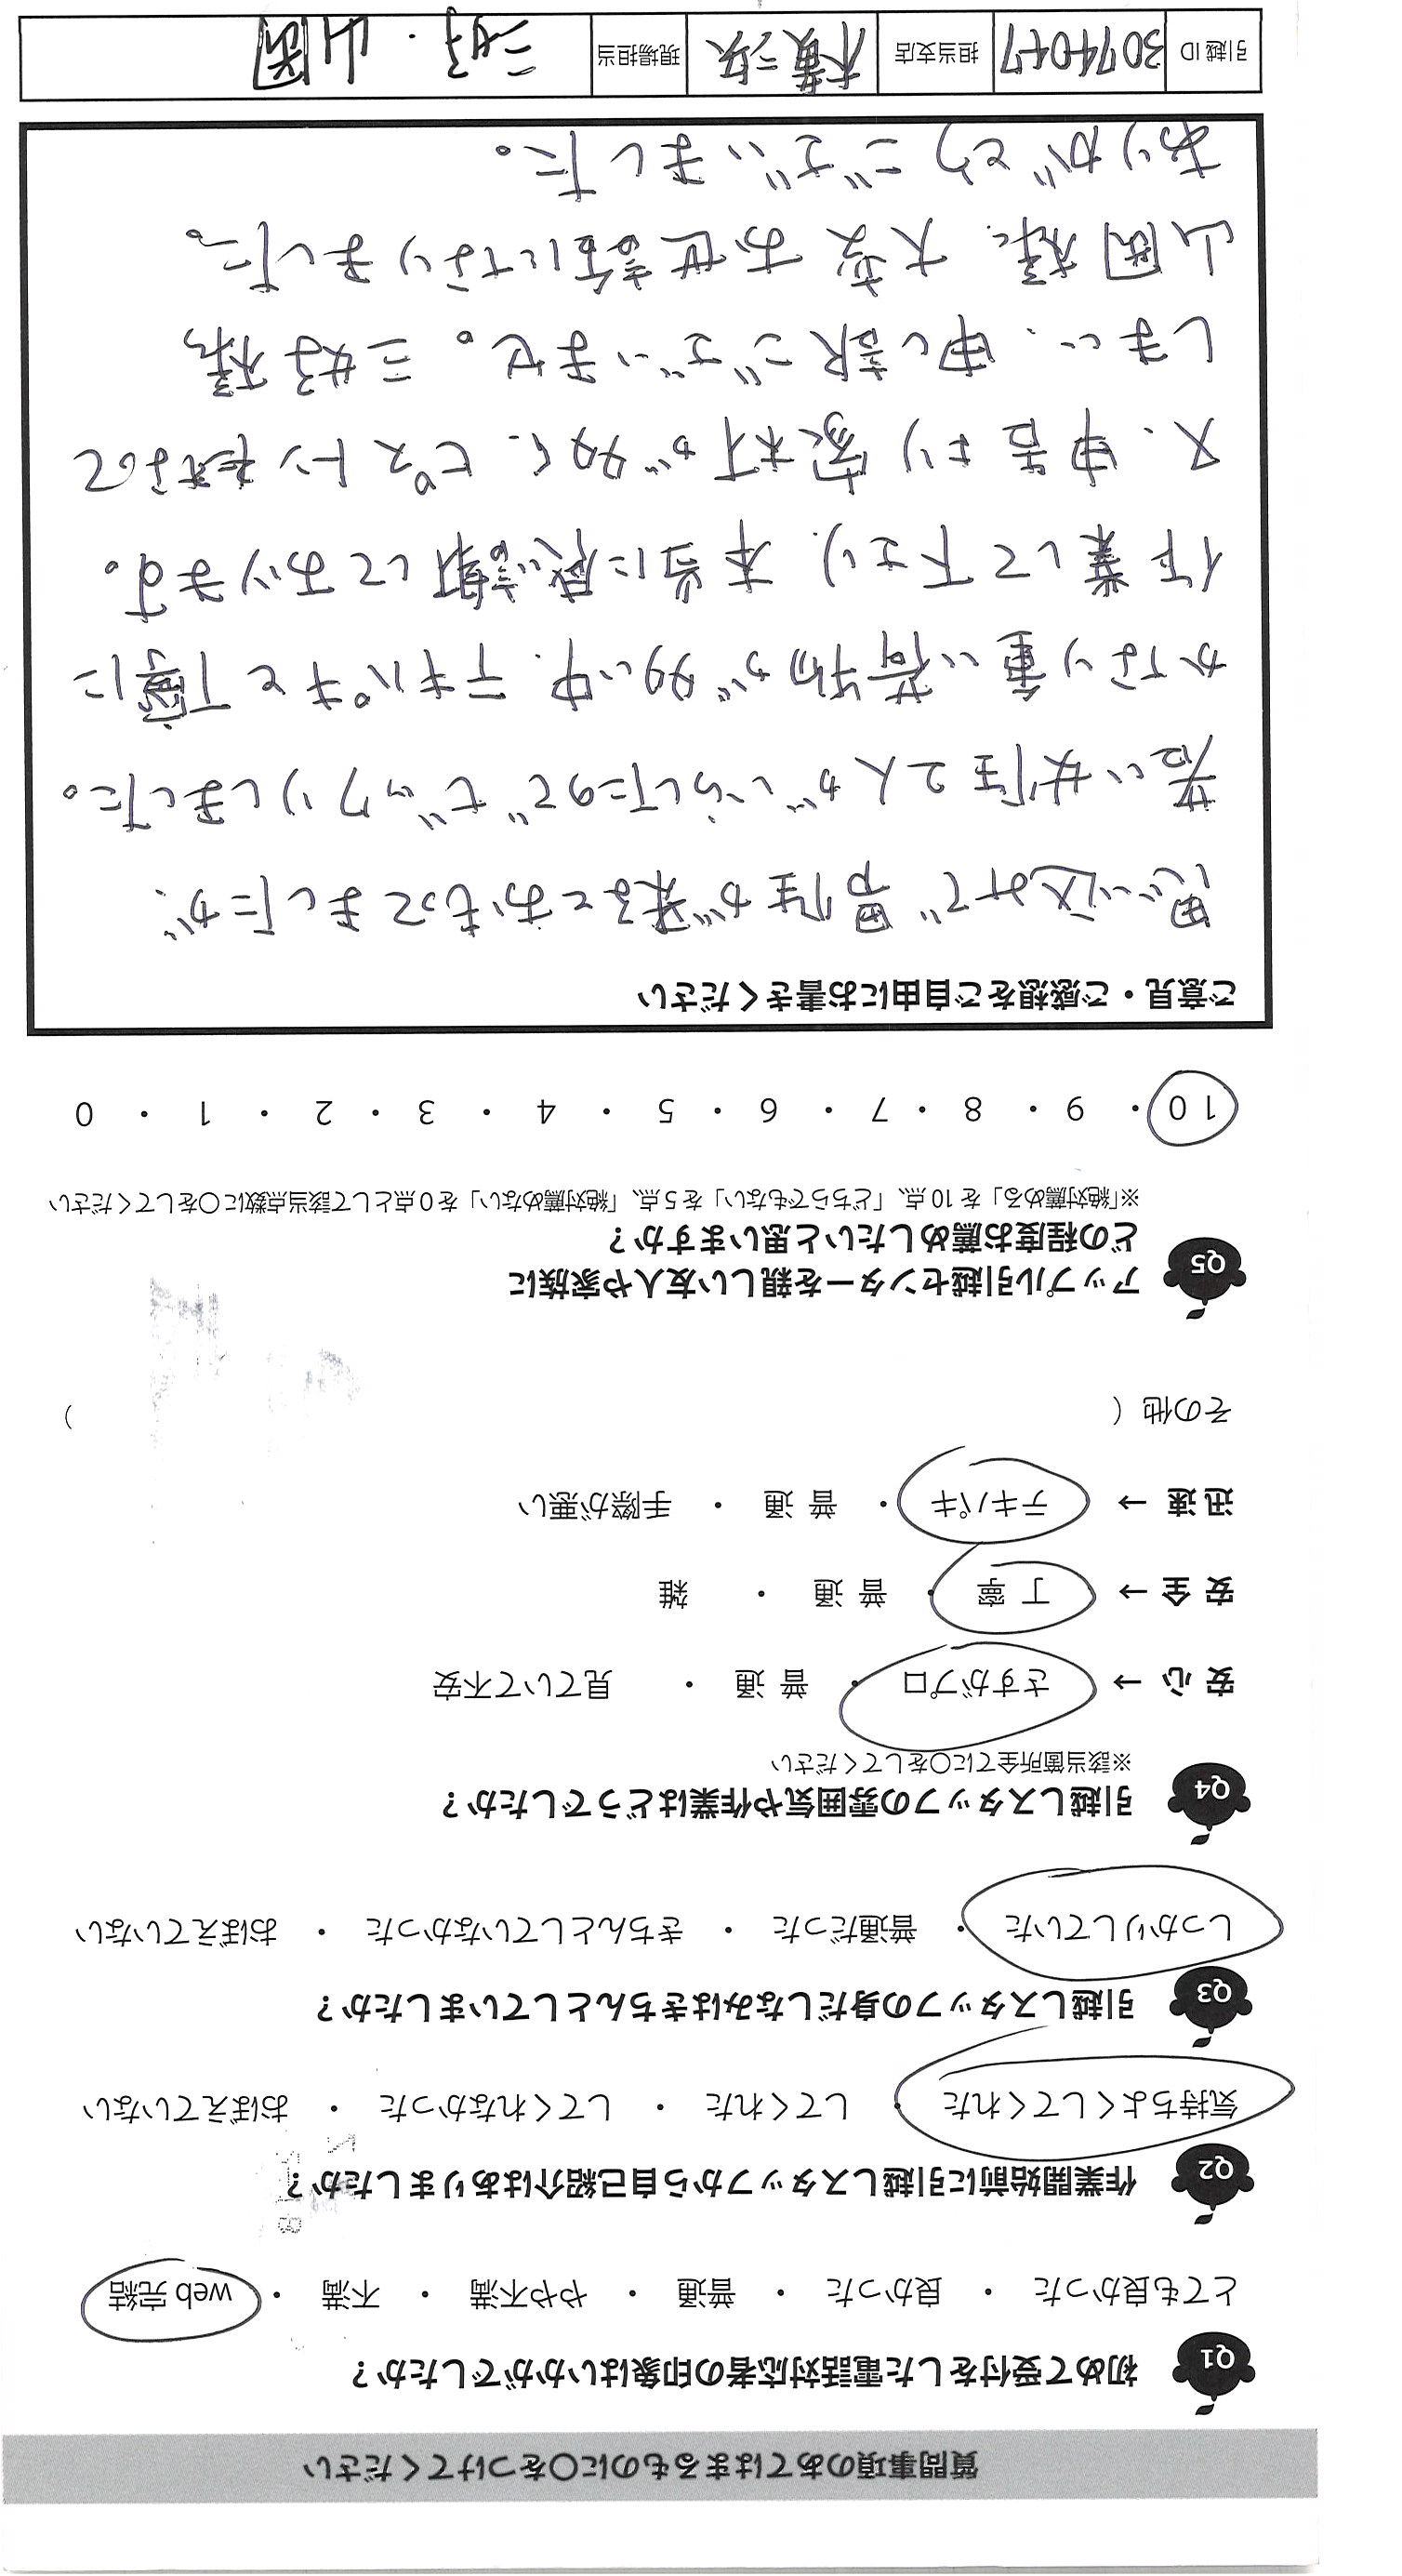 質問事項のあてはまるものに○をつけてください
Q1 初めて受付をした電話対応者の印象はいかがでしたか？
とても良かった ・ 良かった ・ 普通 ・ やや不満 ・ 不満 ・ web 完結
Q2 作業開始前に引越しスタッフから自己紹介はありましたか？
気持ちよくしてくれた ・ してくれた ・ してくれなかった ・ おぼえていない
Q3 引越しスタッフの身だしなみはきちんとしていましたか？
しっかりしていた ・ 普通だった ・ きちんとしていなかった ・ おぼえていない
Q4 引越しスタッフの雰囲気や作業はどうでしたか？
※該当箇所全てに○をしてください
安 心 → さすがプロ ・ 普 通 ・ 見ていて不安
安 全 → 丁 寧 ・ 普 通 ・ 雑
迅 速 → テキパキ ・ 普 通 ・ 手際が悪い
その他（ ）
Q5 アップル引越センターを親しい友人や家族に
どの程度お薦めしたいと思いますか？
※「絶対薦める」を 10 点、「どちらでもない」を 5 点、「絶対薦めない」を 0 点として該当点数に○をしてください
10 ・ 9 ・ 8 ・ 7 ・ 6 ・ 5 ・ 4 ・ 3 ・ 2 ・ 1 ・ 0
ご意見・ご感想をご自由にお書きください
思い込みで男性が来るとおもってましたが、
若い女性2人がいらしたのでビックリしました。
かなり重い荷物が多い中、テキパキと丁寧に
作業して下さり、本当に感謝しております。
又、申告より家材が多く、ピストンをさせて
しまい、申し訳ございませ。三好様、
山岡様、大変お世話になりました。
ありがとうございました。
引越 ID 3074047 担当支店 横浜 現場担当 三好・山岡